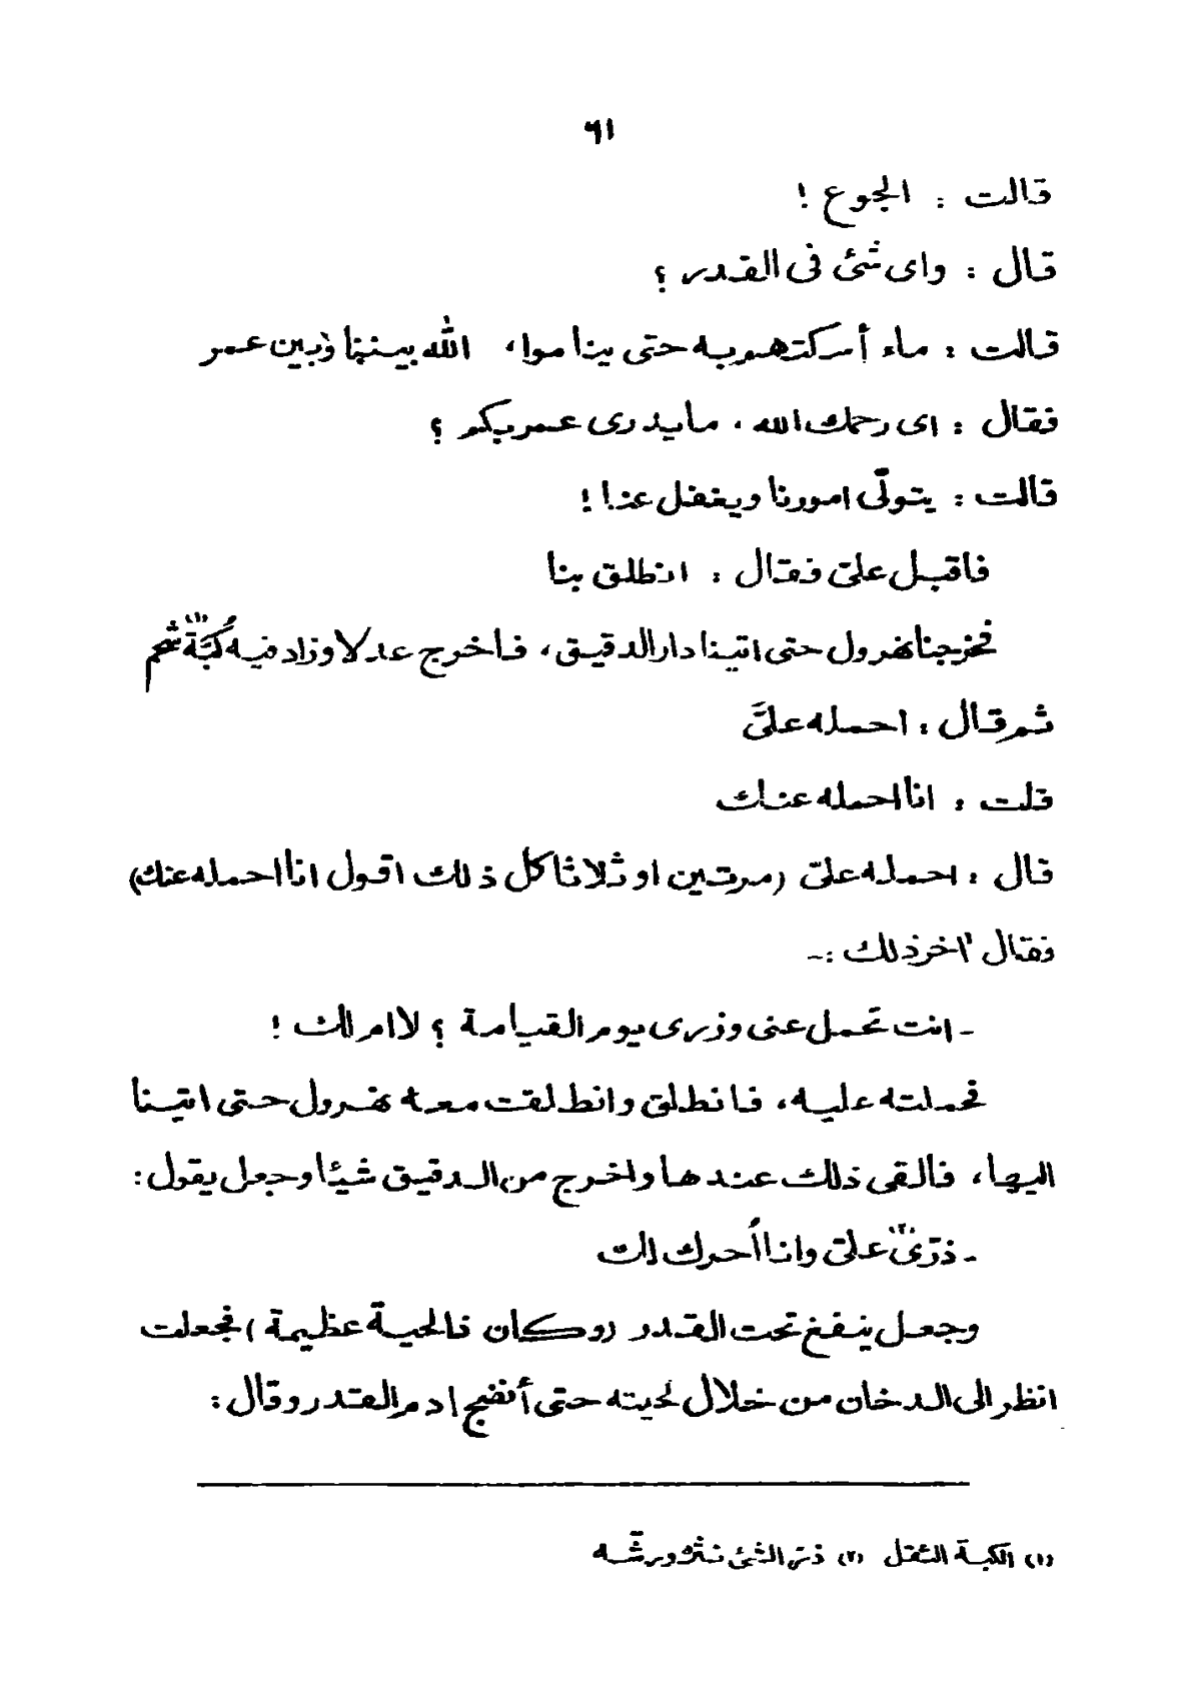 ٦١
قالت : الجوع !
قال : واى شئ فى القدر ؟
قالت : ماء أسكتهم به حتى يناموا، الله بيننا وبين عمر
فقال : اى رحمك الله ، ما يدرى عمر بكم ؟
قالت : يتولّى امورنا ويغفل عنا !
فاقبل علىّ فقال : انطلق بنا
فخرجنا نهرول حتى اتينا دار الدقيق، فاخرج عدلا وزاد فيه كُبَّةَ (١) شحم
ثم قال : احمله علىَّ
قلت : انا احمله عنك
قال : احمله علىّ (مرتين او ثلاثا كل ذلك اقول انا احمله عنك)
فقال آخر ذلك :-
- انت تحمل عنى وزرى يوم القيامة ؟ لا ام لك !
فحملته عليه، فانطلق وانطلقت معه نهرول حتى اتينا
اليها، فالقى ذلك عندها واخرج من الدقيق شيئا وجعل يقول:
- ذرّى (٢) علىّ وانا أُحرك لك
وجعل ينفخ تحت القدر (وكان ذا لحية عظيمة) فجعلت
انظر الى الدخان من خلال لحيته حتى أنضج ادم القدر وقال :
(١) الكبة الثقل (٢) ذرّ الشئ نثره ورشّه